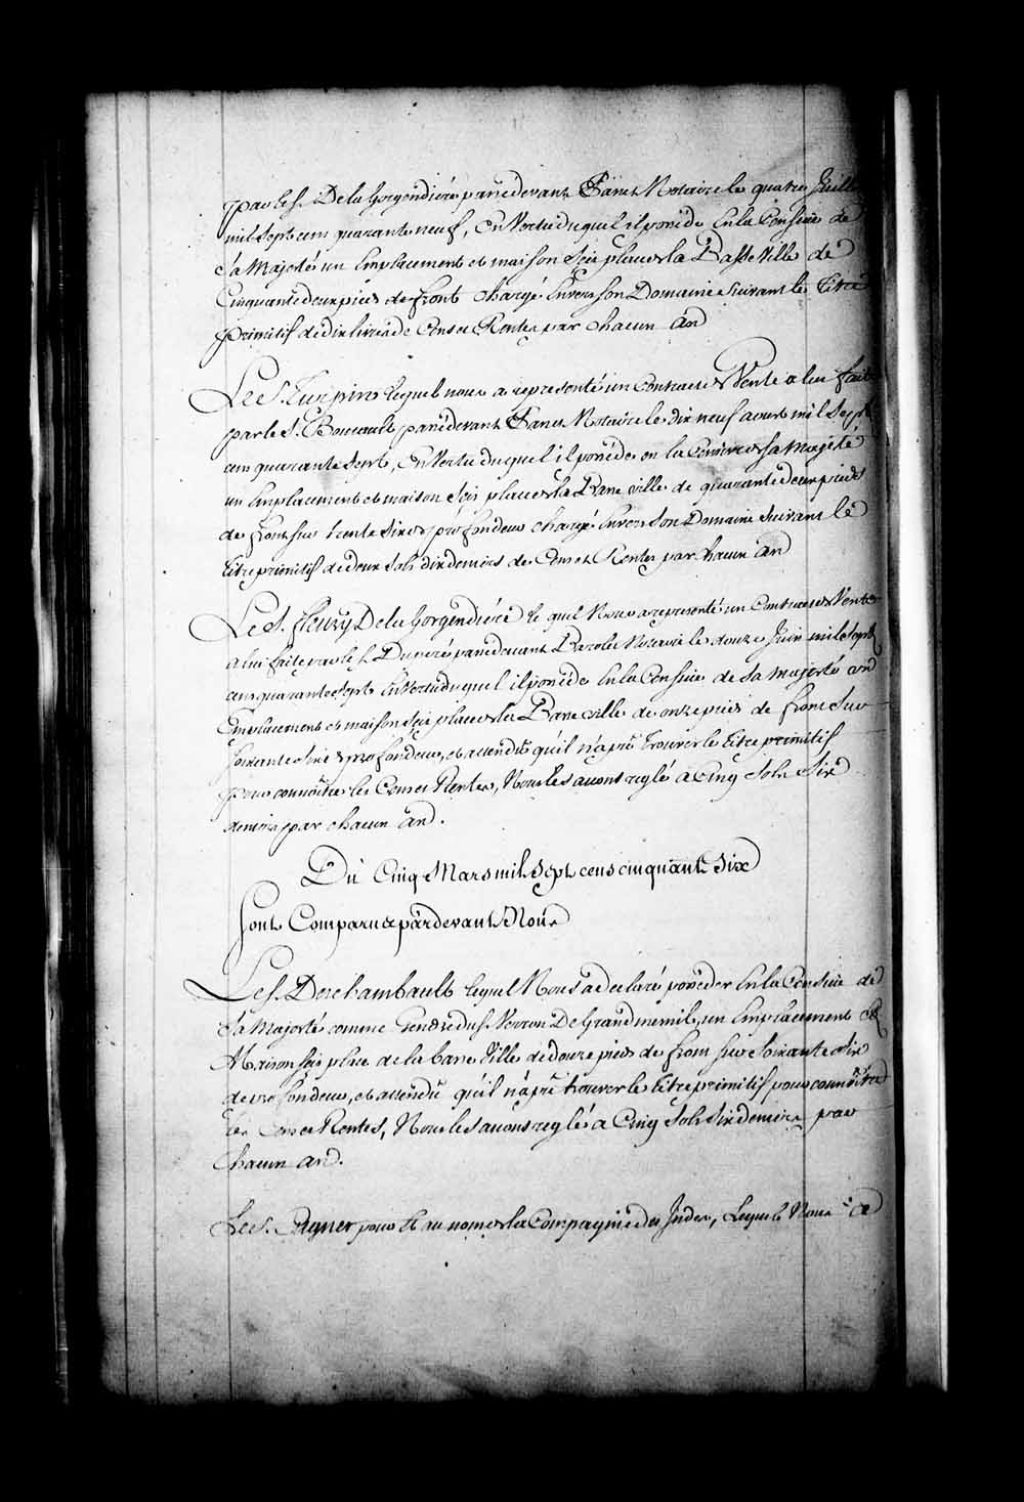 par le S. De la Gorgendiére passé devant Panet Notaire le quatre Juillet
mil Sept cens quarante neuf, En Vertu duquel il possède En la Censive de
Sa Majesté un Emplacement et maison Seis place de la Basse Ville de
Cinquante deux pieds de front chargé Envers son Domaine Suivant le Titre
primitif de dix livres de Cens et Rentes par chacun an
Le S. Turpin lequel nous a representé un Contract de Vente a lui fait
par le S. Boucault passé devant Panet Notaire le dix neuf aoust mil Sept
cens quarante Sept, En Vertu duquel il possède en la Censive de Sa Majesté
un Emplacement et maison Seis place de la Basse ville de quarante deux pieds
de front sur trente Six de profondeur chargé Envers Son Domaine Suivant le
titre primitif de deux Sols dix deniers de Cens et Rentes par chacun an
Le S. fleury De la Gorgendiére lequel Nous a representé un Contract de Vente
a lui faite par le S. Dumeré passé devant Barolet Notaire le douze Juin mil Sept
cens quarante Sept En Vertu duquel il possède En la Censive de Sa Majesté un
Emplacement et maison Seis place de la Basse ville de onze pieds de front Sur
Soixante Six de profondeur, et attendû qu'il n'a pû trouver le titre primitif
pour connoître les Cens et Rentes, Nous les avons reglé a Cinq Sols Six
deniers par chacun an.
Du Cinq Mars mil Sept cens cinquante Six
Sont Comparus pardevant Nous
Le S. Deschambault lequel Nous a declaré posseder En la Censive de
Sa Majesté comme Gendre du S. Verron De Grandmenil, un Emplacement Et
Maison Seis place de la basse Ville de douze pieds de front Sur Soixante Six
de profondeur, et attendû qu'il n'a pû trouver le titre primitif pour connoître
les Cens et Rentes, Nous les avons reglés a Cinq Sols Six deniers par
chacun an.
Le S. pour Et au nom de la Compagnie des Indes, Lequel Nous a